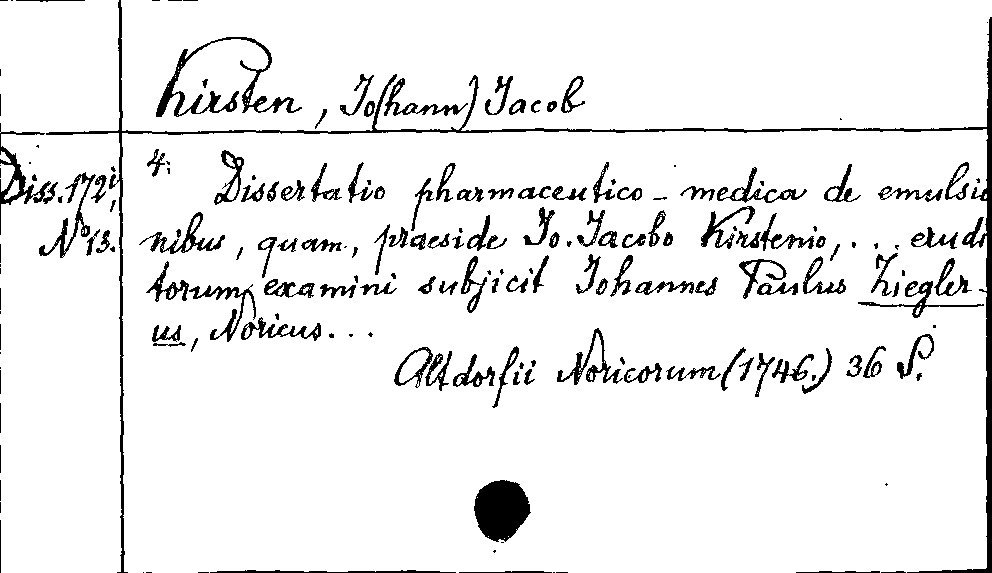 Kirsten, Jo(hann) Jacob
Diss. 172i,
No 13.
4: Dissertatio pharmaceutico-medica de emulsio
nibus, quam, praeside Jo. Jacobo Kirstenio, ... erudi
torum examini subjicit Johannes Paulus Ziegler-
us, Noricus...
Altdorfii Noricorum (1746.) 36 S.